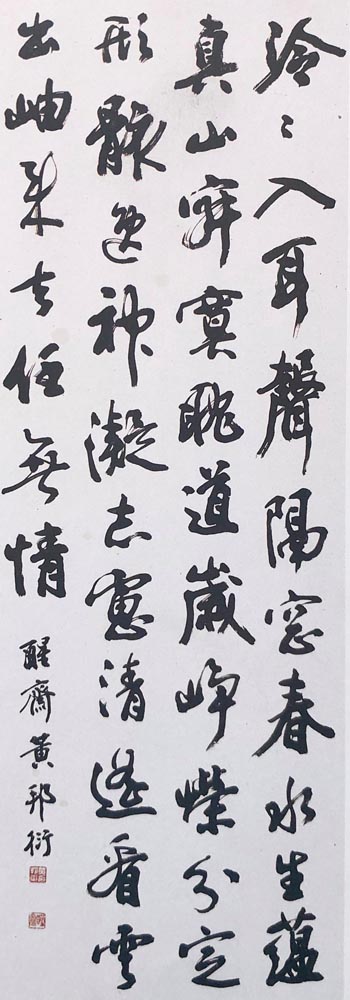 泠〻入耳聲隔窓春水生蘊
真山寂寞道歲崢嶸分定
形骸逸神凝志慮清遙看雲
出岫来去任無情
醒齋黃邦衍